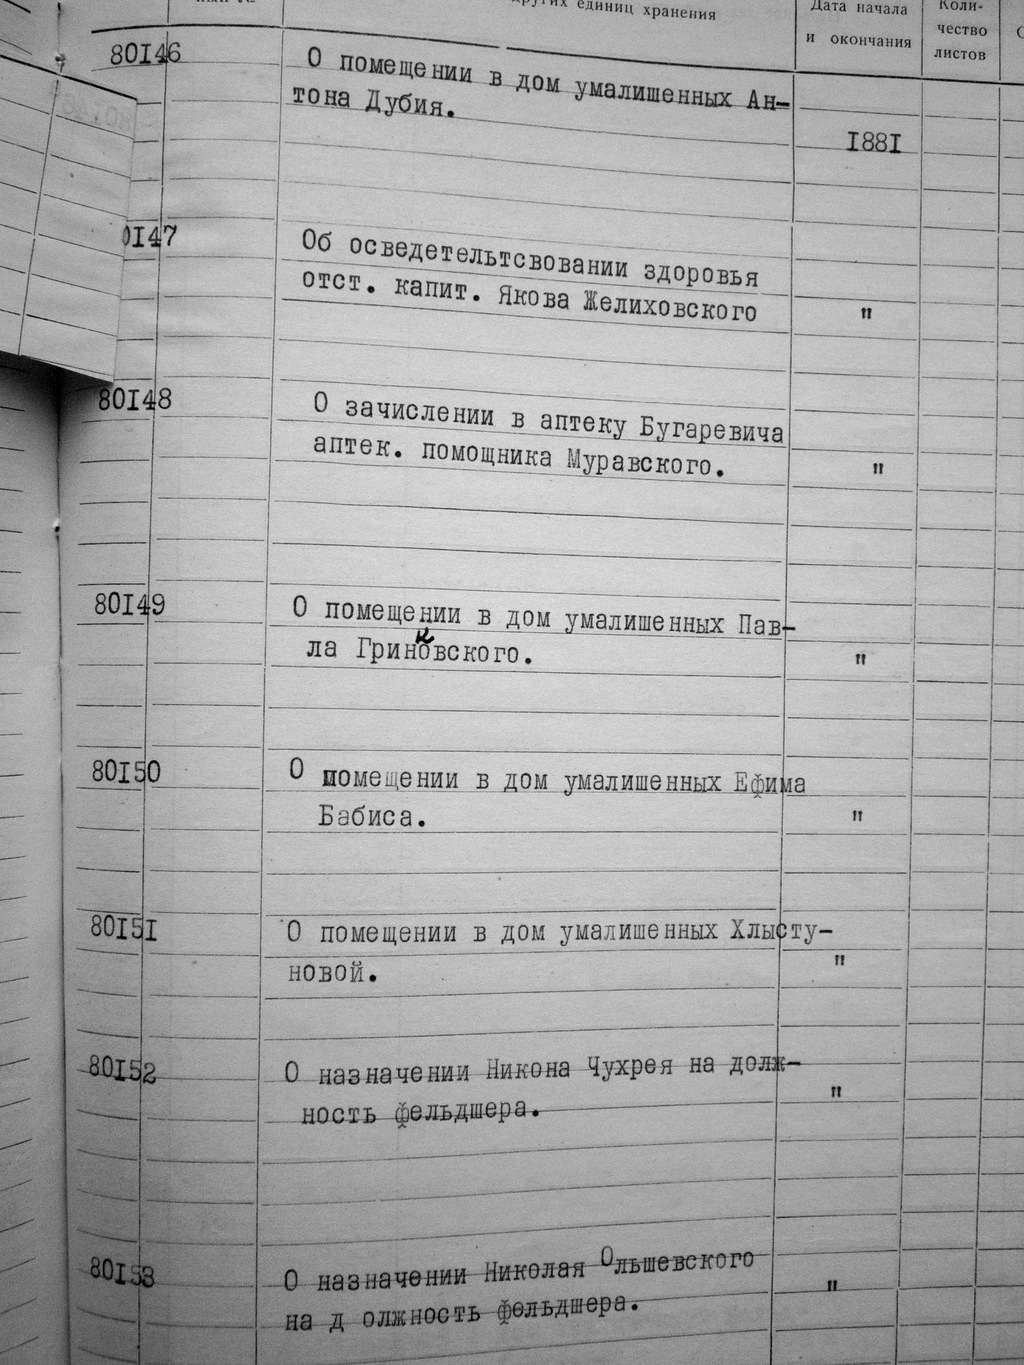 других единиц хранения
Дата начала
и окончания
Коли-
чество
листов
80I46
О помещении в дом умалишенных Ан-
тона Дубия.
I88I
0I47
Об осведетельтсвовании здоровья
отст. капит. Якова Желиховского
"
80I48
О зачислении в аптеку Бугаревича
аптек. помощника Муравского.
"
80I49
О помещении в дом умалишенных Пав-
ла Гринковского.
"
80I50
О помещении в дом умалишенных Ефима
Бабиса.
"
80I5I
О помещении в дом умалишенных Хлысту-
новой.
"
80I52
О назначении Никона Чухрея на долж-
ность фельдшера.
"
80I53
О назначении Николая Ольшевского
на д олжность фельдшера.
"